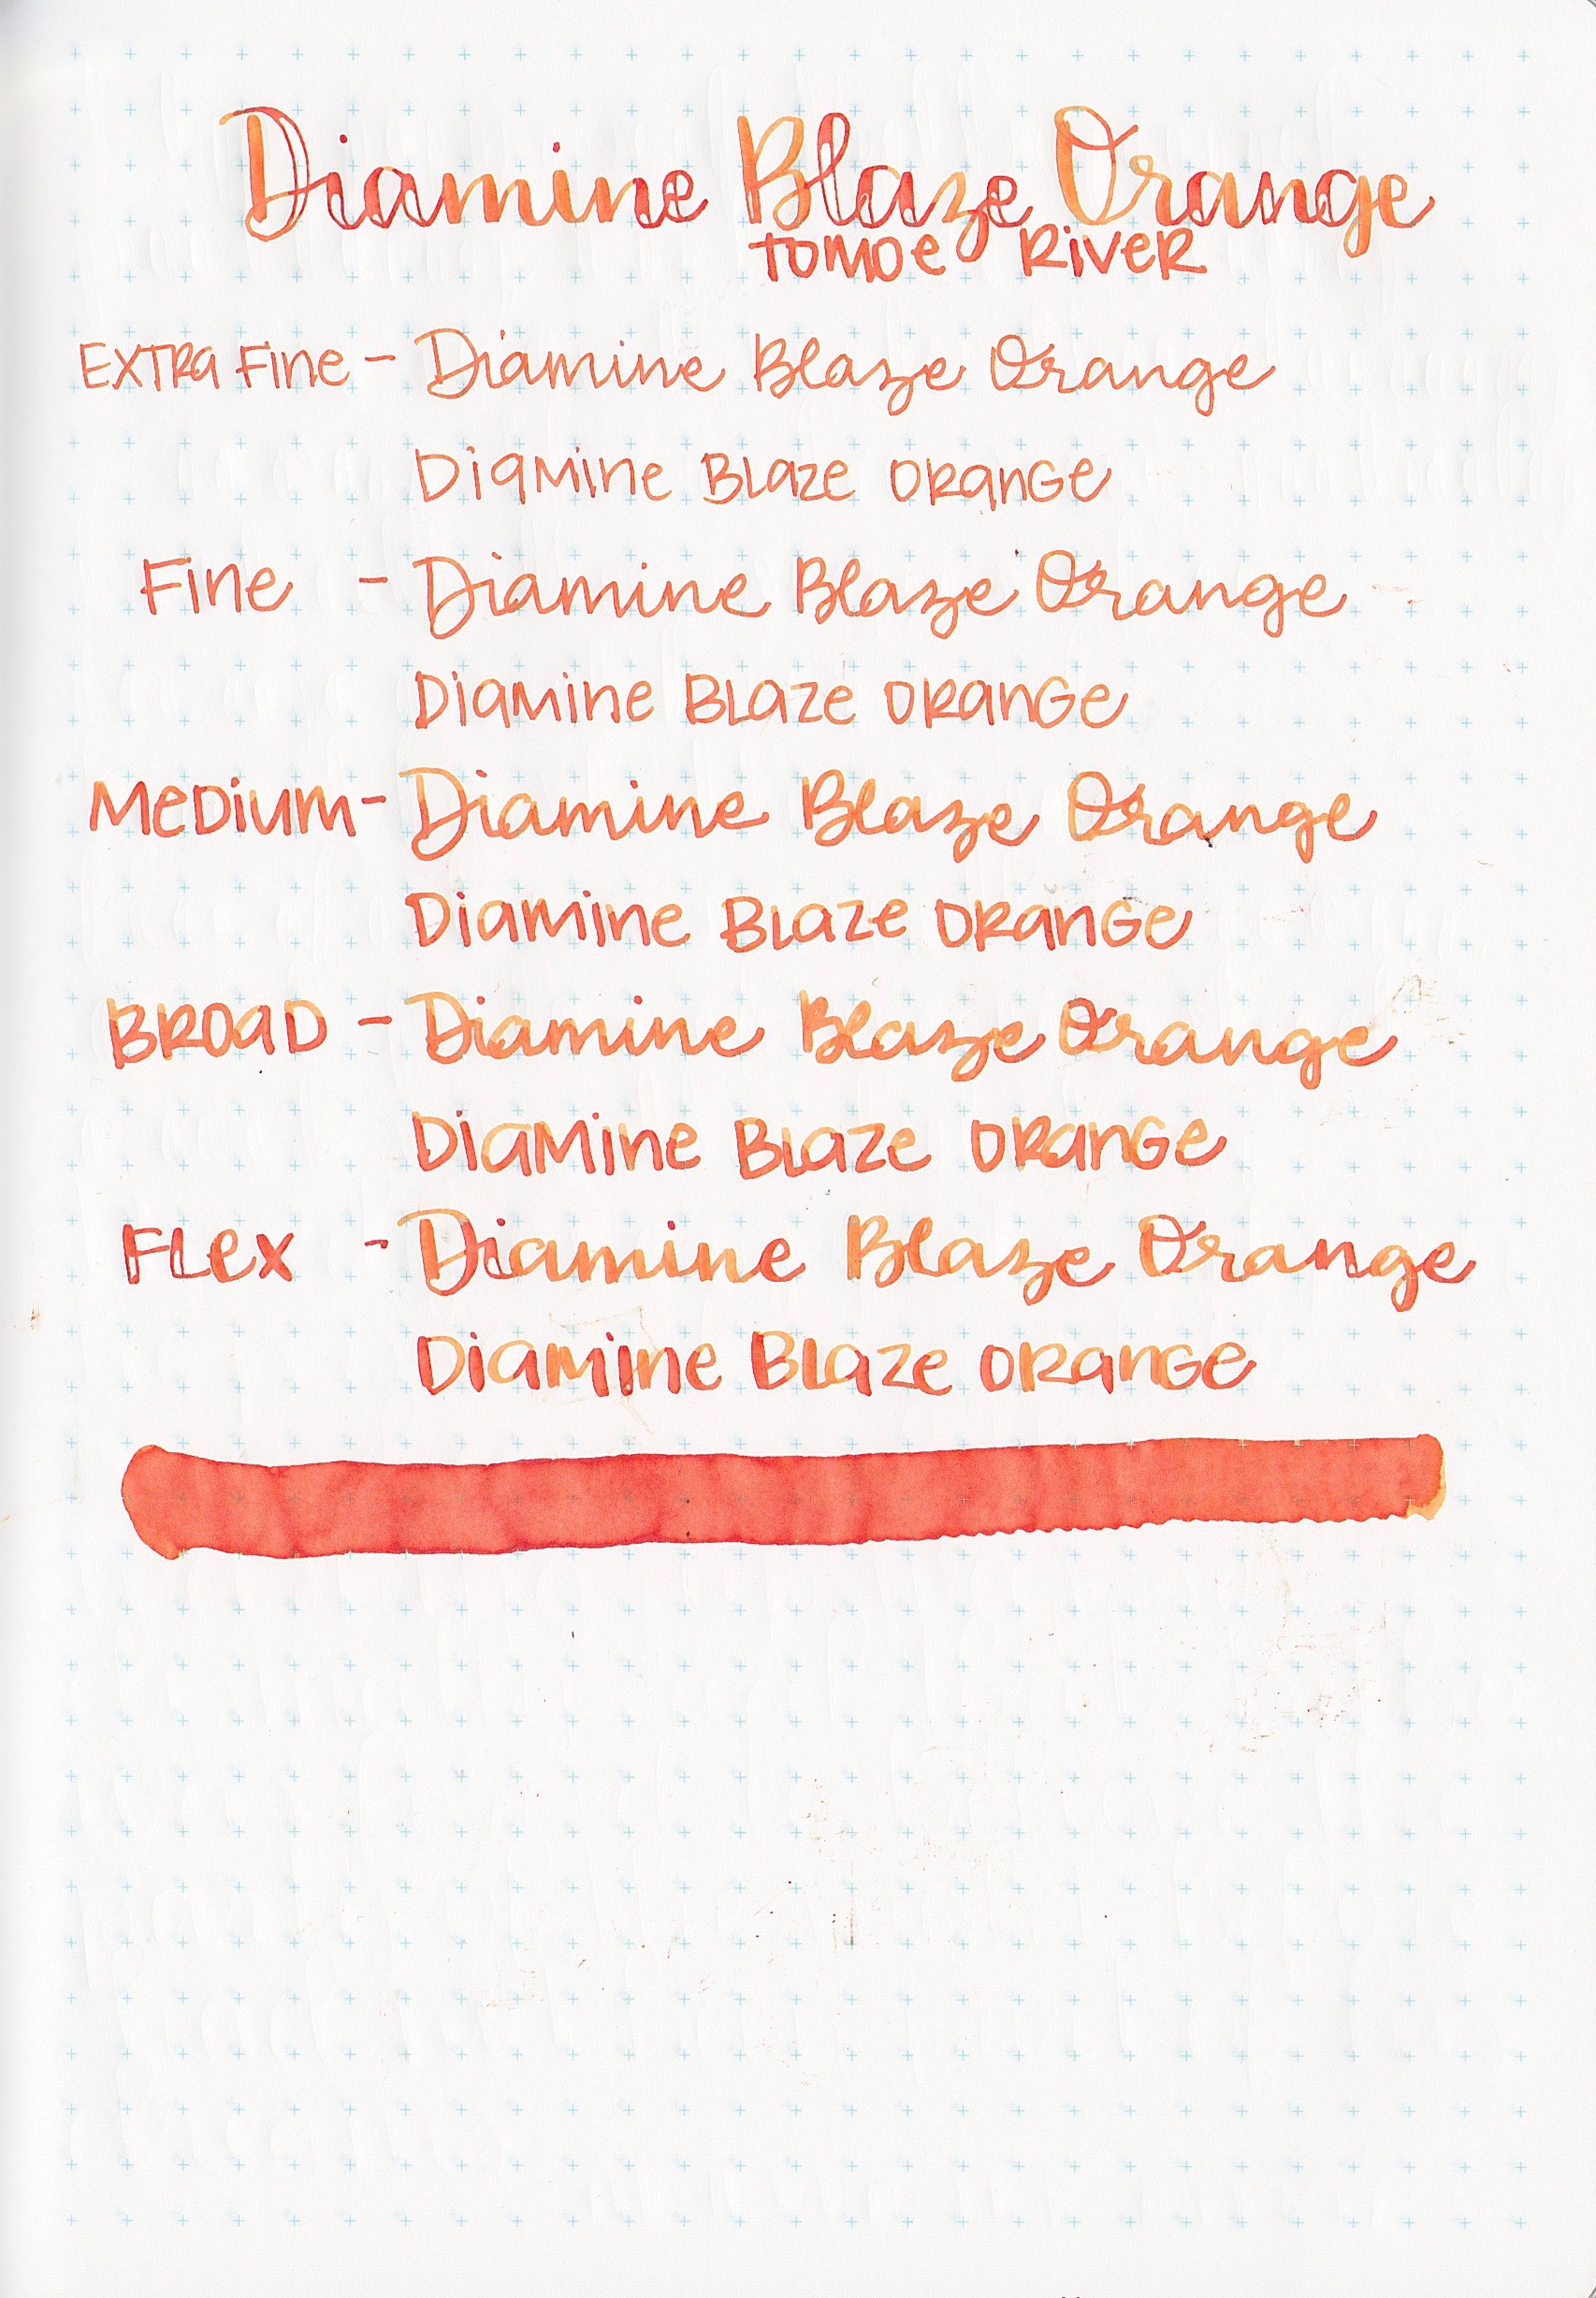 Diamine Blaze Orange
Tomoe River
Extra Fine - Diamine Blaze Orange
Diamine Blaze Orange
Fine - Diamine Blaze Orange
Diamine Blaze Orange
Medium - Diamine Blaze Orange
Diamine Blaze Orange
Broad - Diamine Blaze Orange
Diamine Blaze Orange
Flex - Diamine Blaze Orange
Diamine Blaze Orange